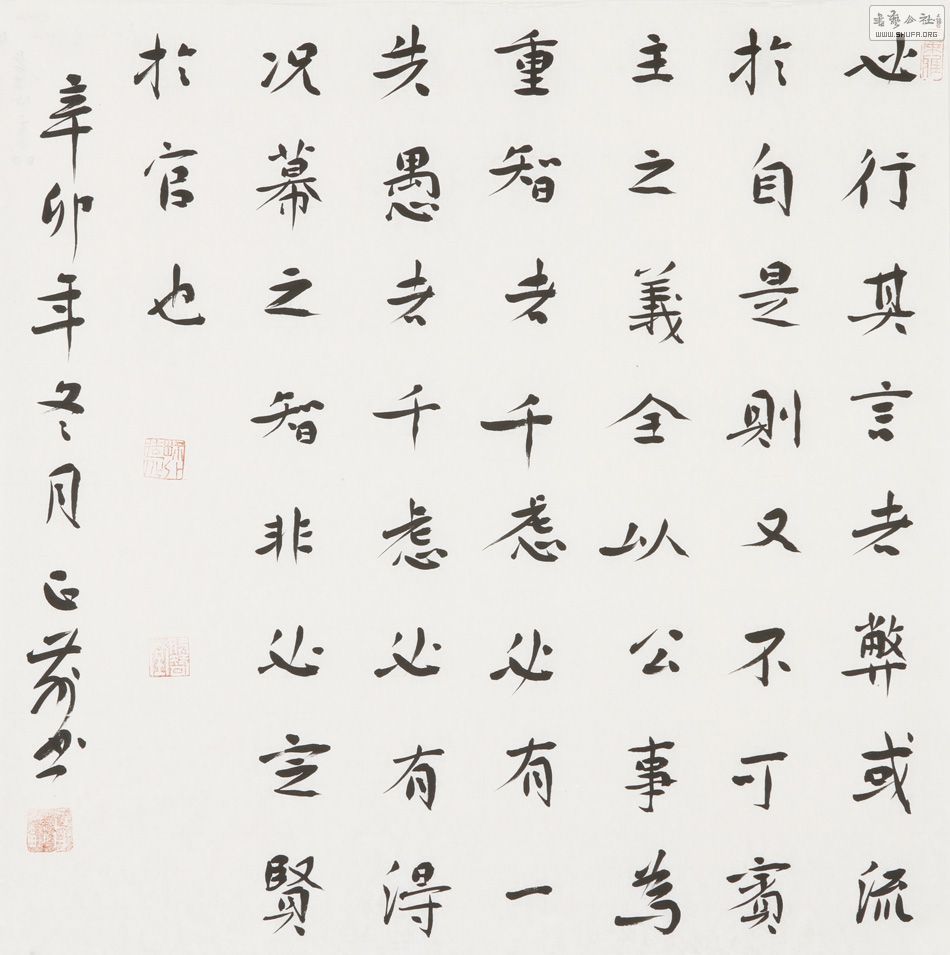 必行其言者弊或流
於自是则又不可賓
主之義全以公事为
重智者千慮必有一
失愚者千慮必有得
况幕之智非必定賢
於官也
辛卯年冬月正荔书
书艺公社
WWW.SHUFA.ORG